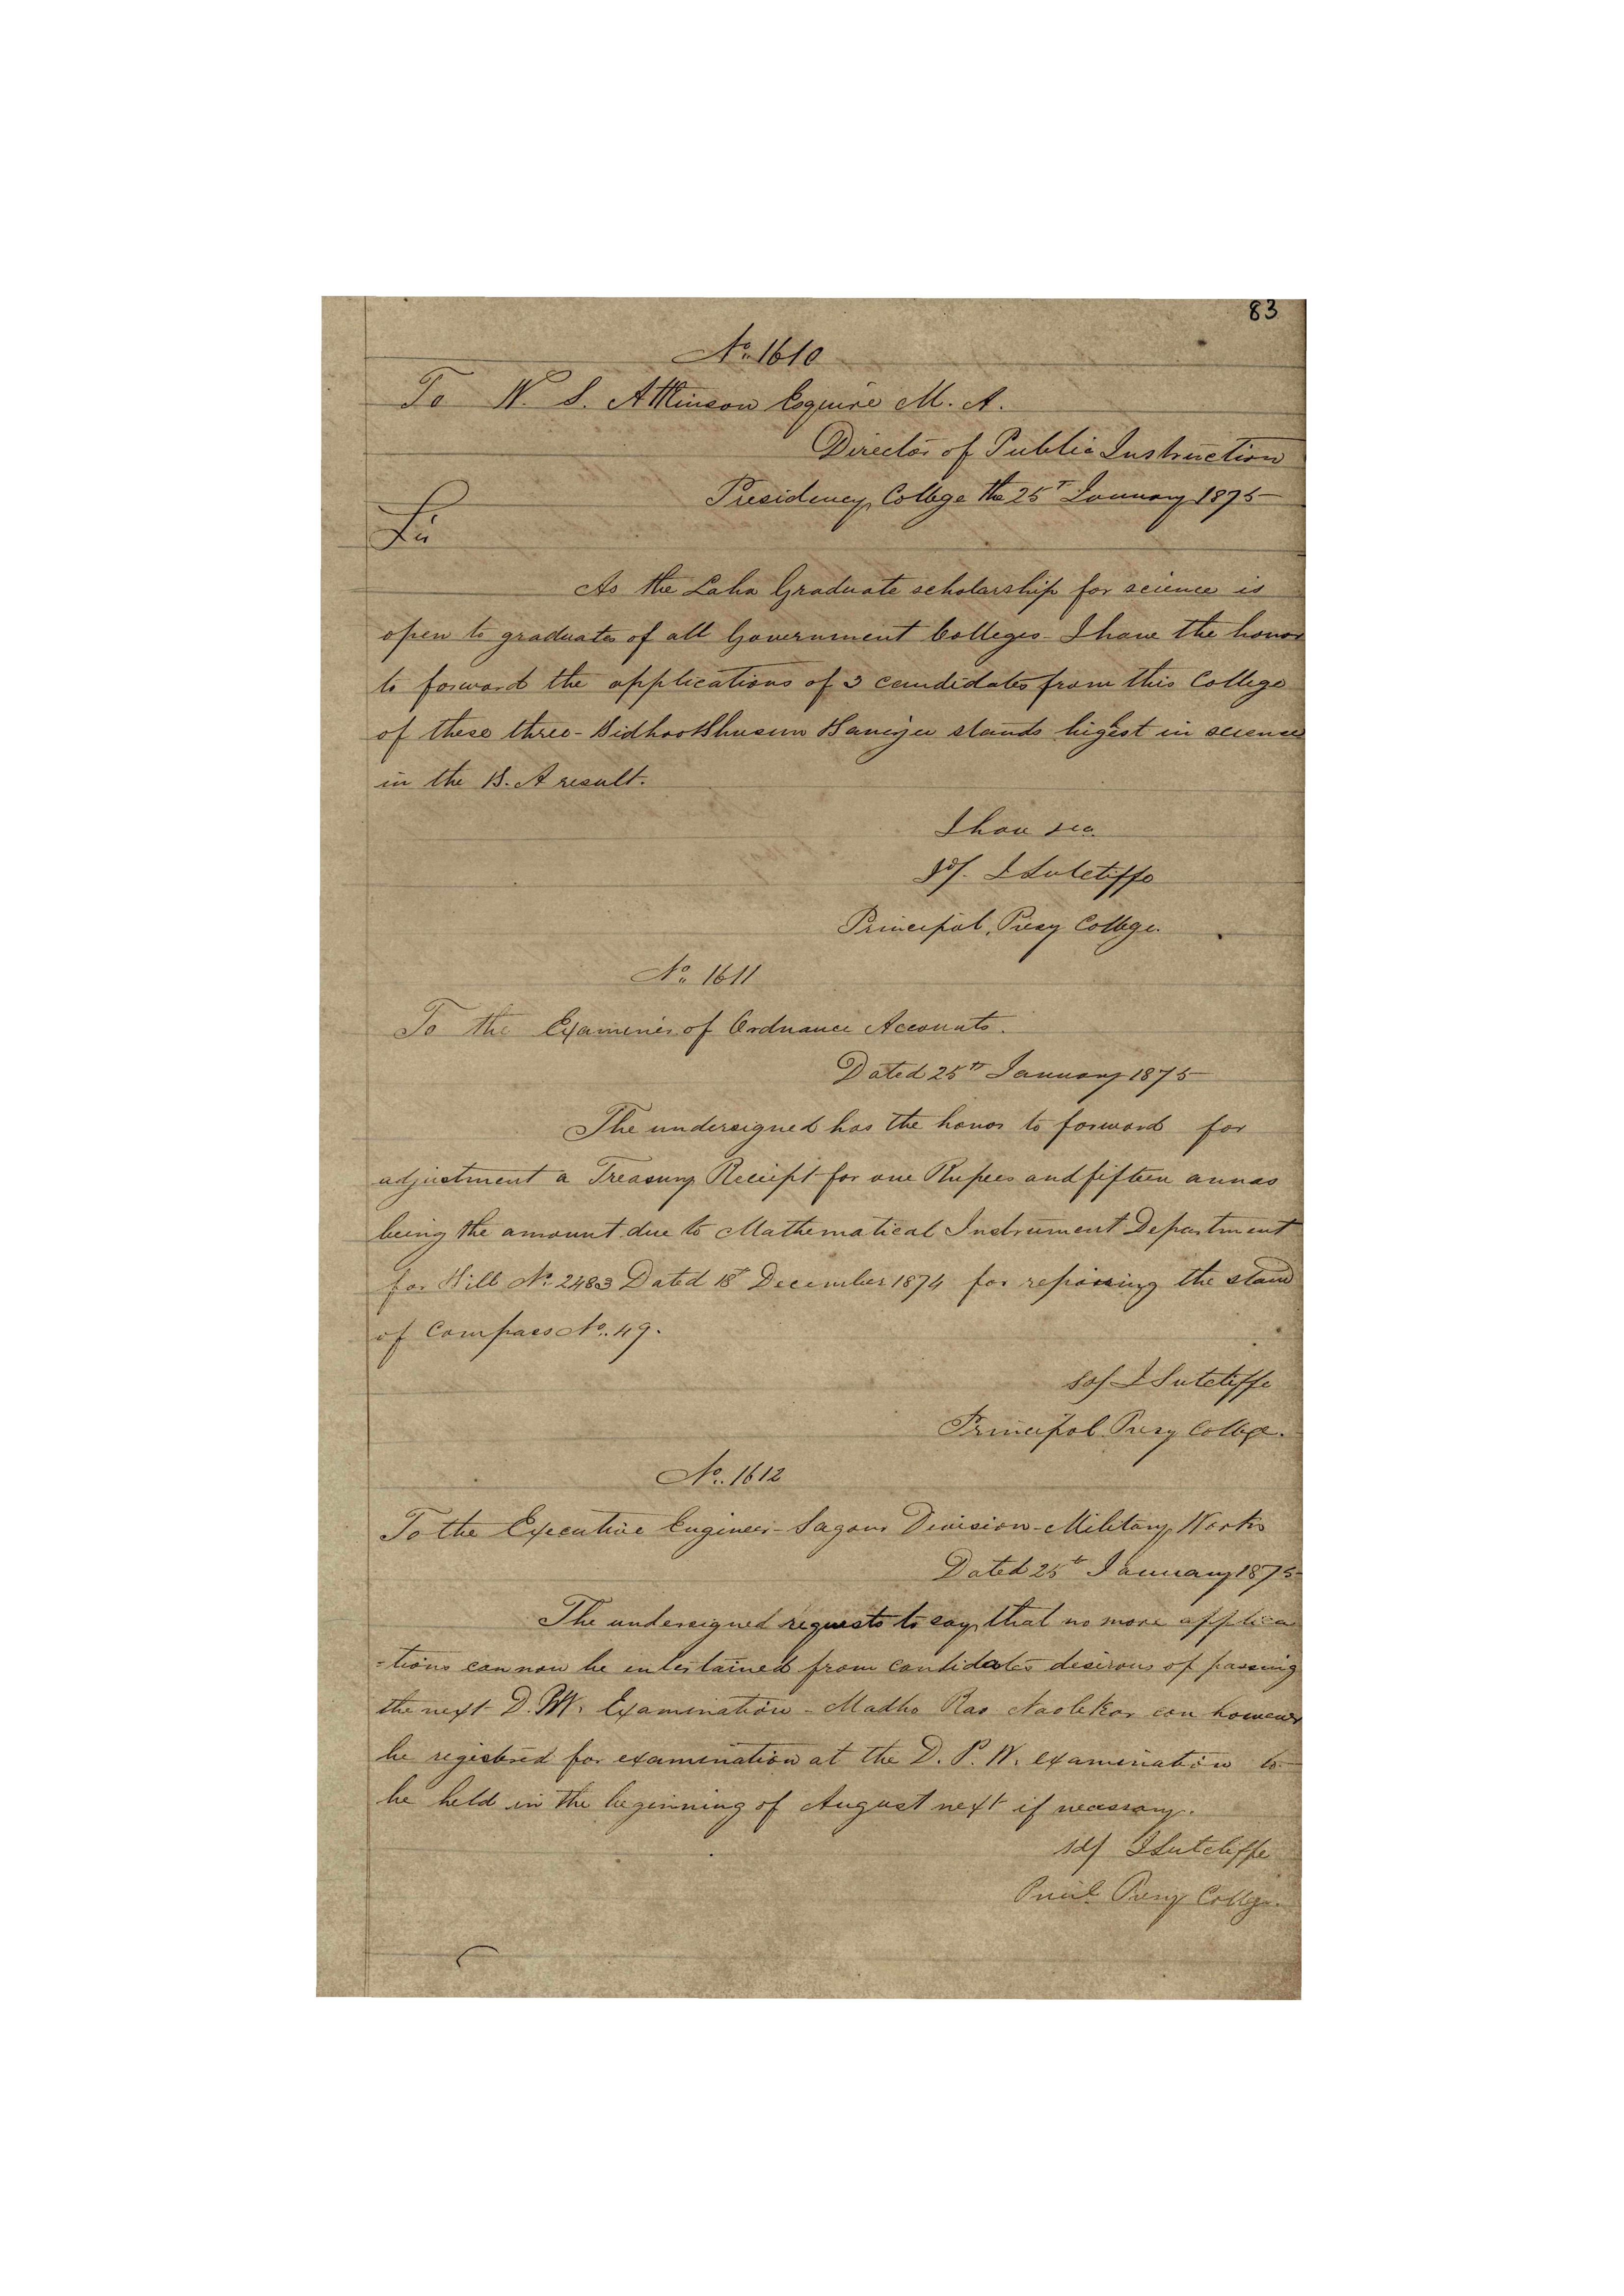 83
No. 1610
To W. S. Atkinson Esquire M. A.
Director of Public Instruction
Presidency College the 25th January 1875
Sir
As the Laha Graduate scholarship for science is
open to graduates of all Government Colleges - I have the honor
to forward the applications of 3 candidates from this College
of these three - Bidhoo Bhusun Banerjee stands higest in science
in the B. A result.
I have &ca.
Sd/. J Sutcliffe
Principal, Presy College.
No. 1611
To the Examiner of Ordnance Accounts.
Dated 25th January 1875
The undersigned has the honor to forward for
adjustment a Treasury Receipt for one Rupees and fifteen annas
being the amount due to Mathematical Instrument Department
for Bill No. 2483 Dated 18th December 1874 for repairing the stand
of Compass No. 49.
Sd/ J Sutcliffe
Principal Presy College.
No. 1612
To the Executive Engineer - Sagour Division - Military Works
Dated 25th January 1875
The undersigned requests to say, that no more applica
-tions can now be entertained from candidates desirous of passing
the next D. P.W. Examination - Madho Rao Naolekar can however
be registered for examination at the D. P. W. examination to
be held in the beginning of August next if necessary.
Sd/ J Sutcliffe
Princl. Presy College.